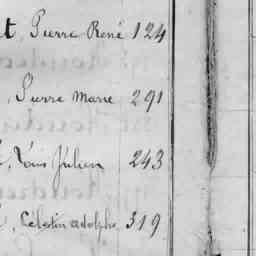 t, Pierre René 124
, Pierre Marie 291
, Louis Julien 243
, Célestin adolphe 319